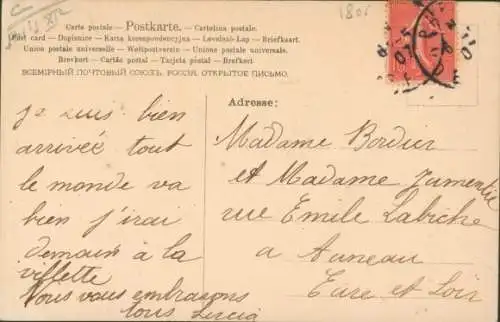 1806
Carte postale - Postkarte. - Cartolina postale.
Post card - Dopisnice - Karta korespondencyjna - Levelező-Lap - Brievkaart
Union postale universelle - Weltpostverein - Unione postale universale.
Brevkort - Cartão postal - Tarjeta postal - Brefkort
ВСЕМІРНЫЙ ПОЧТОВЫЙ СОЮЗЪ. РОССІЯ. ОТКРЫТОЕ ПИСЬМО.
je suis bien
arrivée tout
le monde va
bien j'irai
demain à la
villette
Nous vous embrassons
tous Lucia
Adresse:
Madame Bordier
et Madame Jumentié
rue Emile Labiche
a Auneau
Eure et Loir